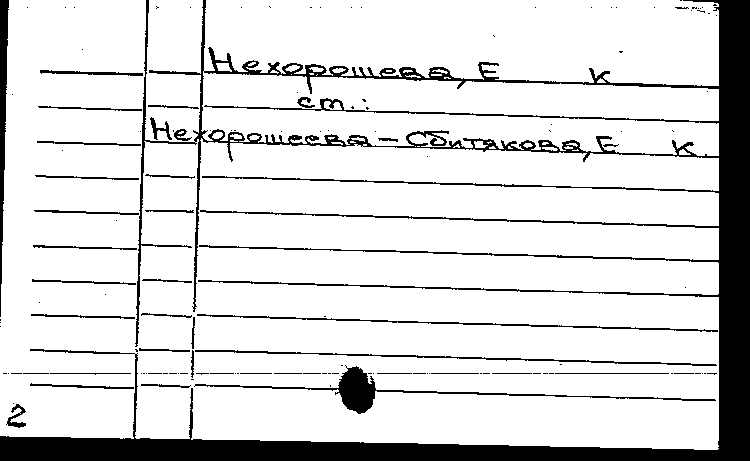 Нехорошева, Е К
ст.:
Нехорошеева – Сбитякова, Е К.
2